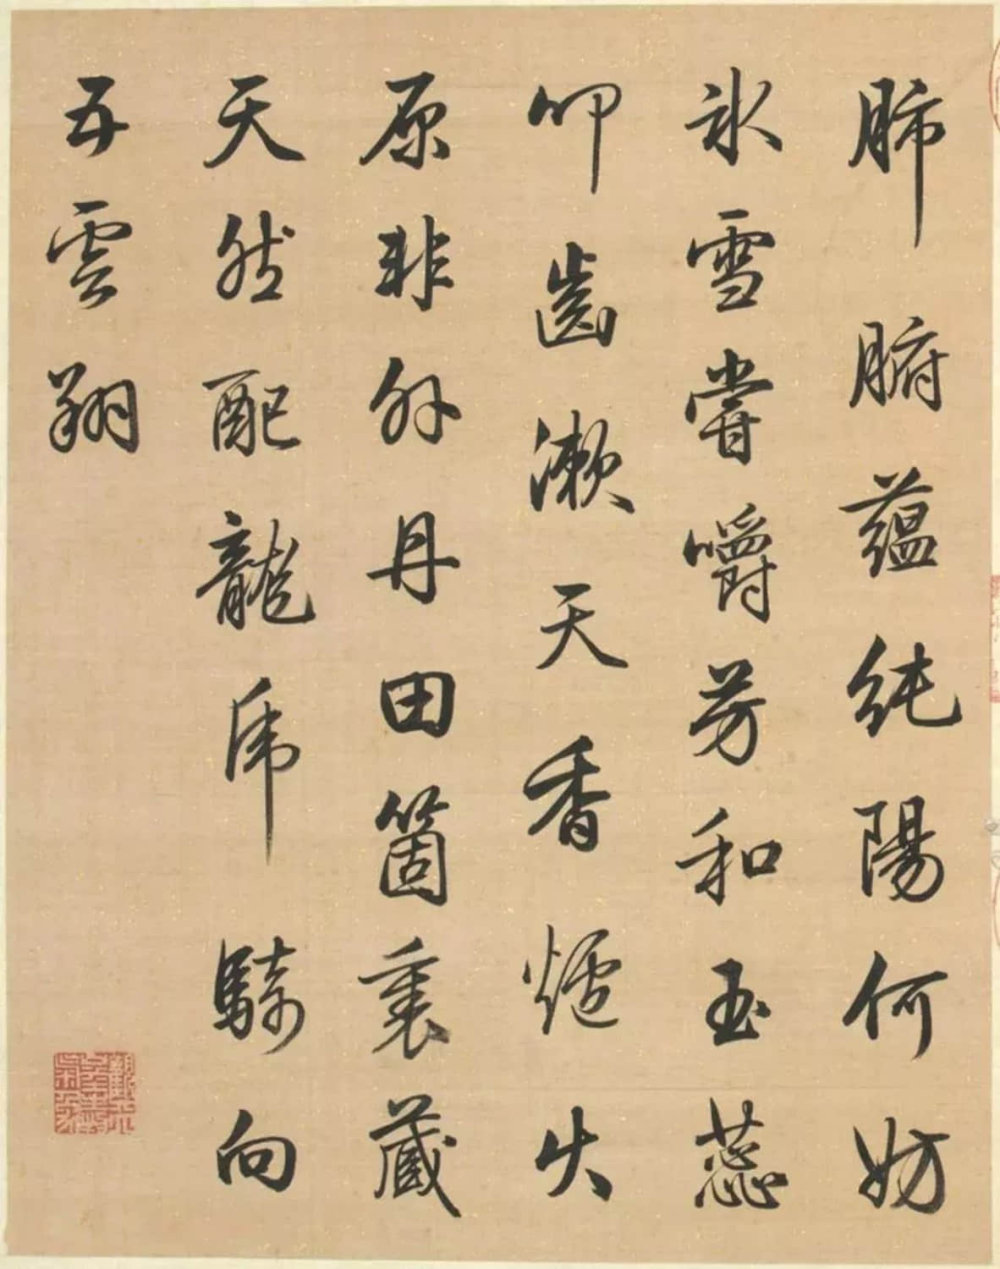 肺腑蘊純陽何妨
氷雪嘗嚼芳和玉蕊
叩齒漱天香爐火
原非外丹田箇裏藏
天然配龍虎騎向
五雲翔